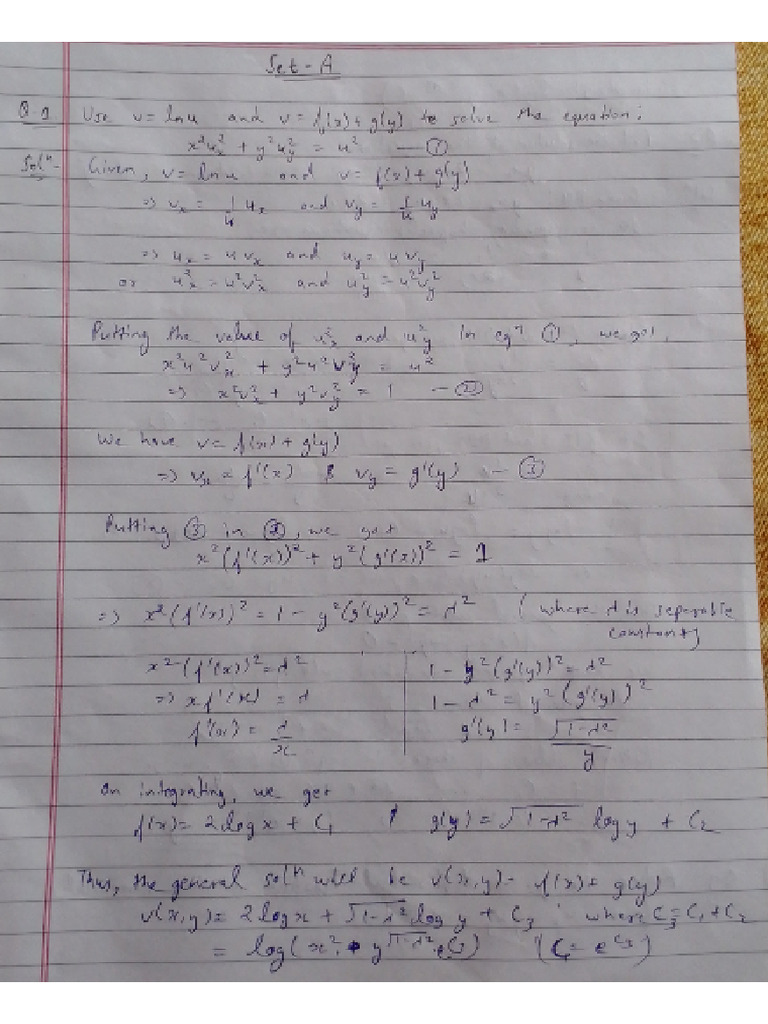 Set-A
Q.1 Use v = ln u and v = f(x) + g(y) to solve the equation:
x²uₓ² + y²u_y² = u² — ①
Solⁿ- Given, v = ln u and v = f(x) + g(y)
=> vₓ = 1/u uₓ and v_y = 1/u u_y
=> uₓ = u vₓ and u_y = u v_y
or uₓ² = u²vₓ² and u_y² = u²v_y²
Putting the value of uₓ² and u_y² in eqⁿ ①, we got,
x²u²vₓ² + y²u²v_y² = u²
=> x²vₓ² + y²v_y² = 1 — ②
We have v = f(x) + g(y)
=> vₓ = f'(x) & v_y = g'(y) — ③
Putting ③ in ②, we got
x²(f'(x))² + y²(g'(x))² = 1
=> x²(f'(x))² = 1 - y²(g'(y))² = λ² (where λ is separable
constant)
x²(f'(x))² = λ² 1 - y²(g'(y))² = λ²
=> x f'(x) = λ 1 - λ² = y²(g'(y))²
f'(x) = λ/x g'(y) = √(1-λ²)/y
on integrating, we get
f(x) = 2 log x + C₁ & g(y) = √(1-λ²) log y + C₂
Thus, the general solⁿ will be v(x,y) = f(x) + g(y)
v(x,y) = 2 log x + √(1-λ²) log y + C₃ where C₃ = C₁ + C₂
= log(x². y^√(1-λ²) .C) (C = e^C₃)